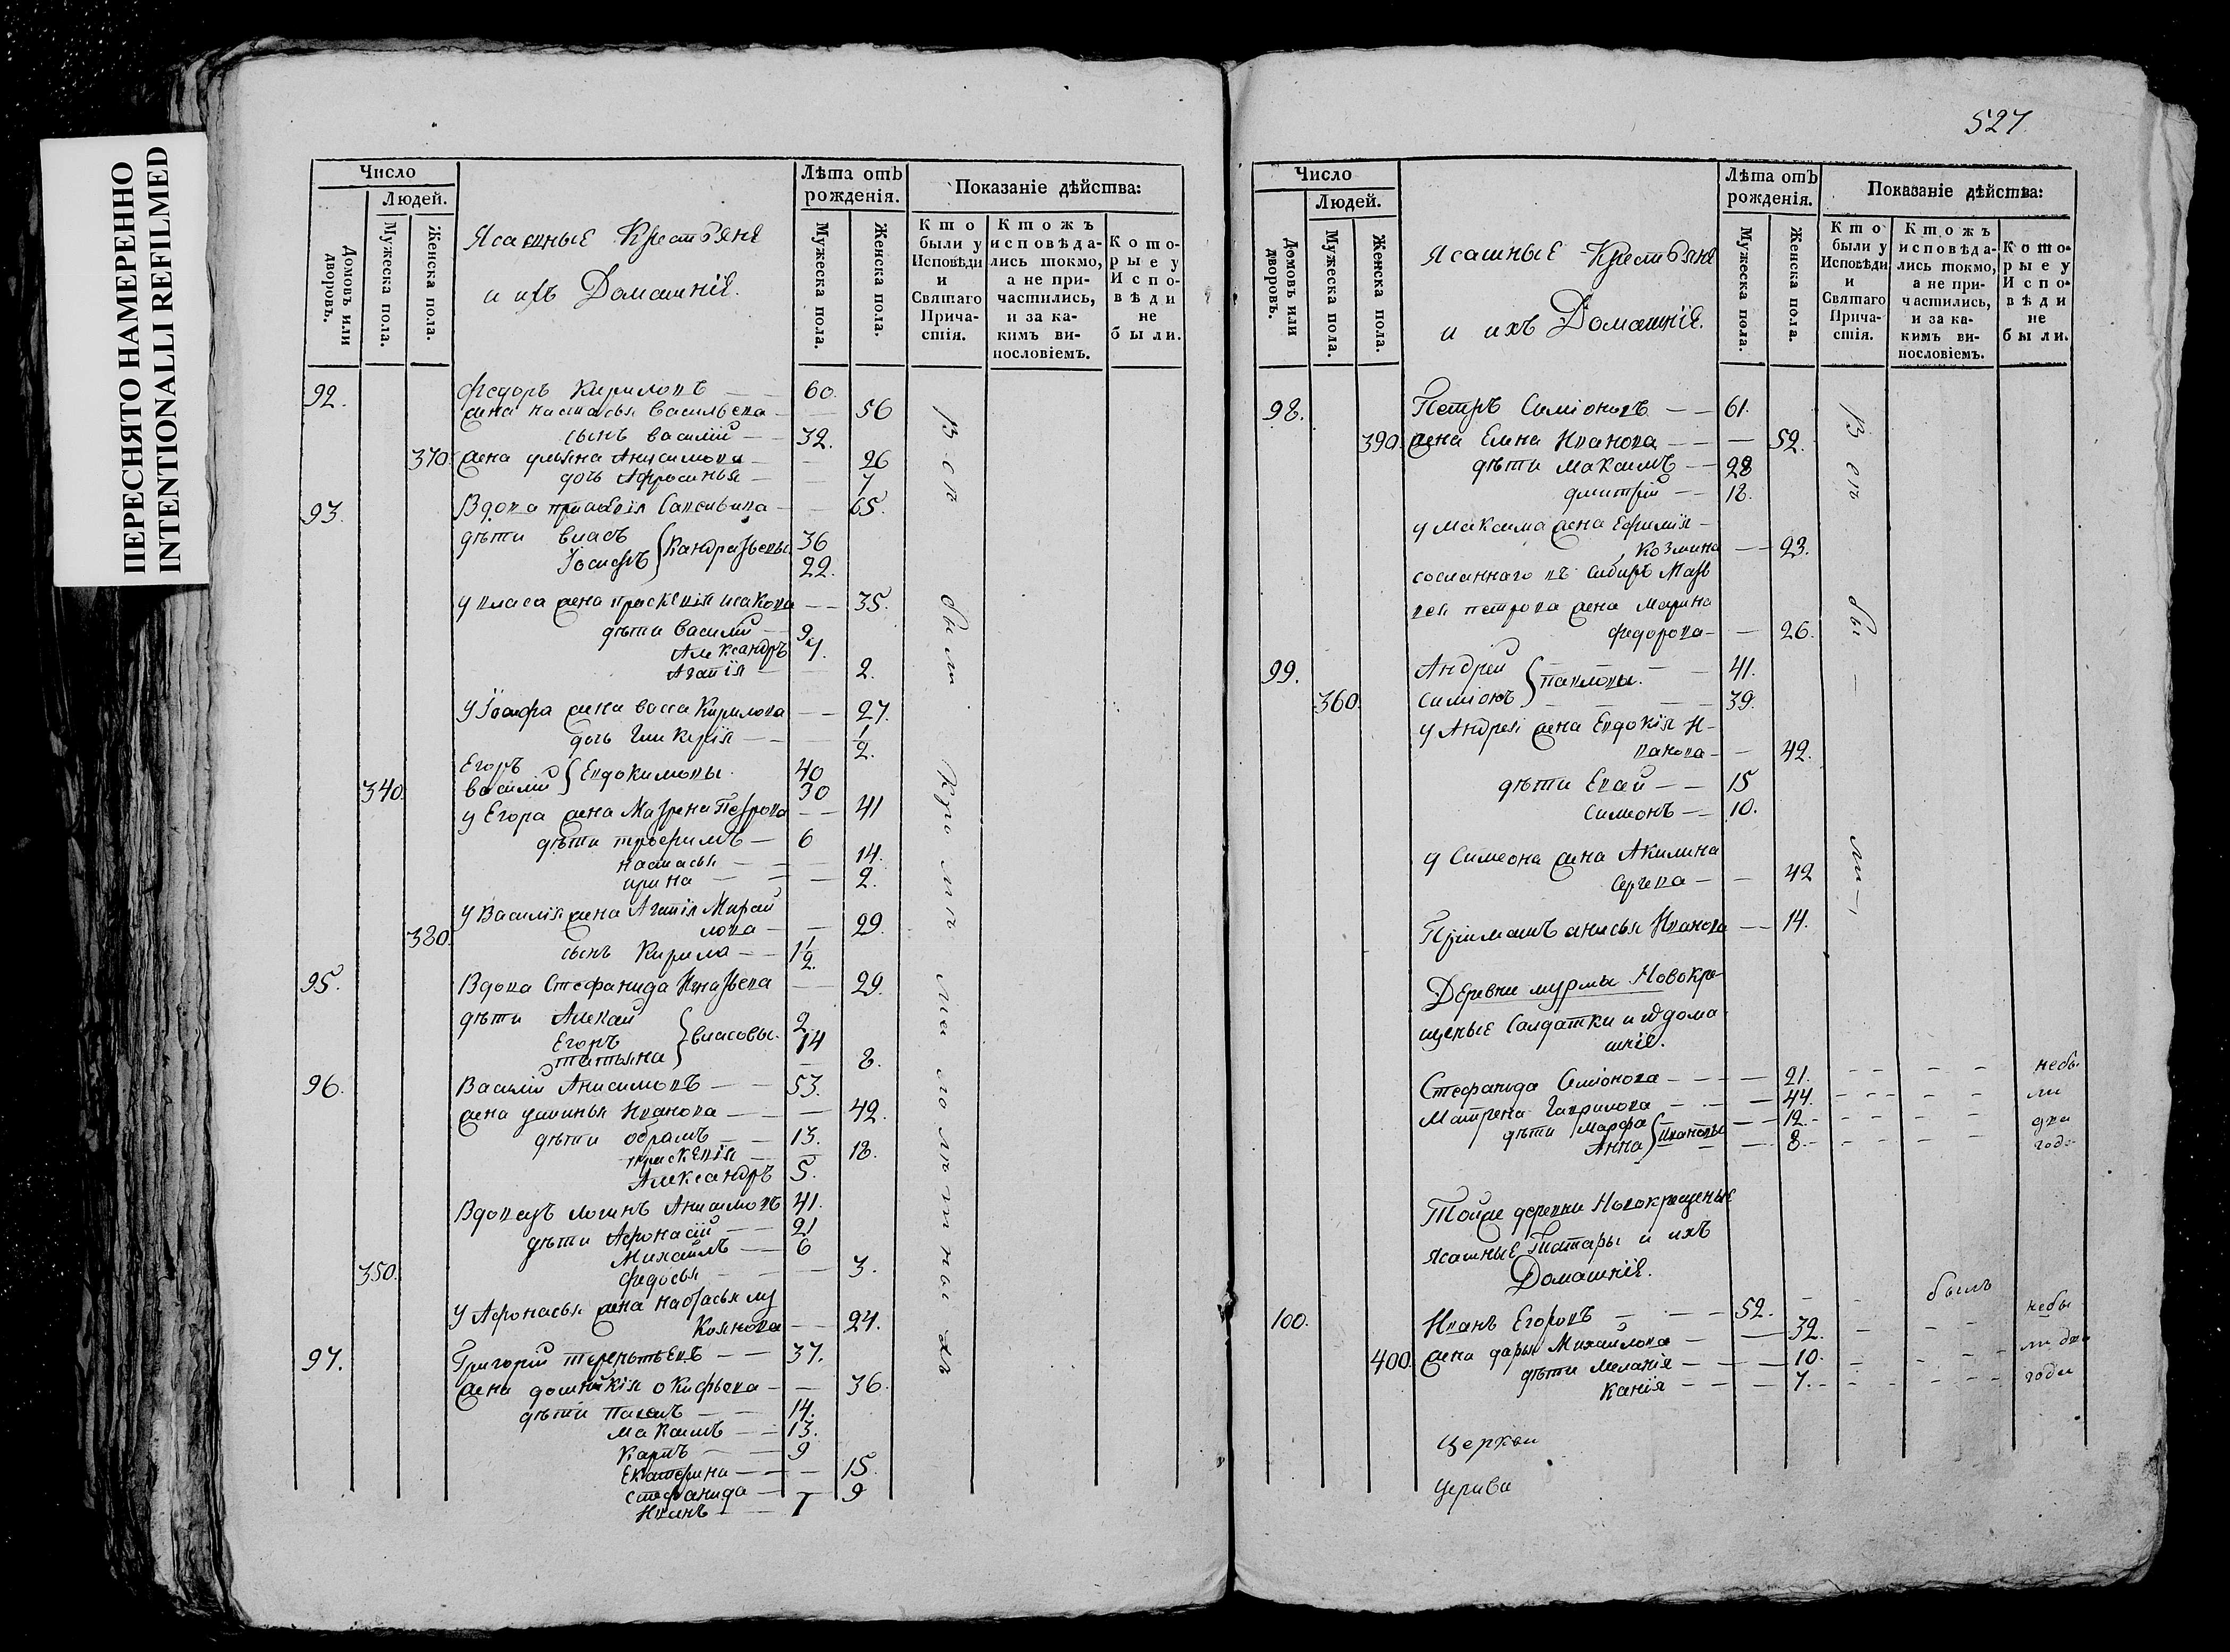 ПЕРЕСНЯТО НАМЕРЕННО
INTENTIONALLI REFILMED
Число
Людей.
Домовъ или дворовъ.
Мужеска пола.
Женска пола.
Ясашные Крестьяне
и ихъ Домашніе.
Лѣта отъ рожденія.
Мужеска пола.
Женска пола.
Показаніе дѣйства:
Кто были у Исповѣди и Святаго Причастія.
Ктожъ исповѣдались токмо, а не причастились, и за какимъ винословіемъ.
Которые у Исповѣди не были.
92. Федоръ Кириловъ 60.
жена настасья Васильева 56
сынъ василій 32.
370. жена ульяна Анисимова 26
дочь Афросинья 7
93. Вдова 65.
дѣти власъ 36
Іосифъ 22.
у власа жена праскевія исакова 35.
дѣти василій 9
Александръ 7.
Агапія 2.
У Іосифа жена васса Кирилова 27.
дочь Гликерія 1/2.
Егоръ 40
340. василій Евдокимовы. 30
у Егора жена Матрена Петрова 41
дѣти трофимъ 6
настасья 14.
ирина 2.
у Василія жена Агапія Михай
380. лова 29.
сынъ Кирила 1 1/2.
95. Вдова Стефанида Игнатьева 29.
дѣти Алексай 2
Егоръ власовы. 14
татьяна 8.
96. Василій Анисимовъ 53.
жена улинья Иванова 42.
дѣти обрамъ 13.
праскевія 18.
Александръ 5.
Вдовецъ логинъ Анисимовъ 41.
дѣти Афонасій 21
Михайлъ 6
350. федосья 3.
У Афонасья жена настасья лу
Коянова 24.
97. Григорій терентьевъ 37.
жена 36.
дѣти павелъ 14.
максимъ 13.
Карпъ 9
Екатерина 15.
Стефанида 9
Иванъ 1
Вси были
527.
Число
Людей.
Домовъ или дворовъ.
Мужеска пола.
Женска пола.
Ясашные Крестьяне
и ихъ Домашніе.
Лѣта отъ рожденія.
Мужеска пола.
Женска пола.
Показаніе дѣйства:
Кто были у Исповѣди и Святаго Причастія.
Ктожъ исповѣдались токмо, а не причастились, и за какимъ винословіемъ.
Которые у Исповѣди не были.
98. Петръ Симіоновъ 61.
390. жена Елена Иванова 52.
дѣти максимъ 28
дмитрій 18.
у максима жена Ефимія
Козмина 23.
сосланнаго въ сибирь Мат
вея петрова жена марина
федорова 26.
99. Андрей павловы. 41.
360. Симіонъ 39.
у Андрея жена Евдокія И
ванова 42.
дѣти 15
Симеонъ 10.
у Симеона жена Акилина
Сергева 42
Пріимышъ анисья Иванова 14.
Деревни мурмы Новокре
щеные Салдатки и ихъ дома
шніе.
Стефанида Симіонова 21. небы
Матрена Гаврилова 44. ли
дѣти Марфа 12. два
Анна Ивановы 8. года
Тойже деревни Новокрещеные
ясашные Татары и ихъ
Домашніе.
100. Иванъ Егоровъ 52. былъ
400. жена дарья Михайлова 32. небы
дѣти меланія 10. ли два
7. года
Вси были
церкви